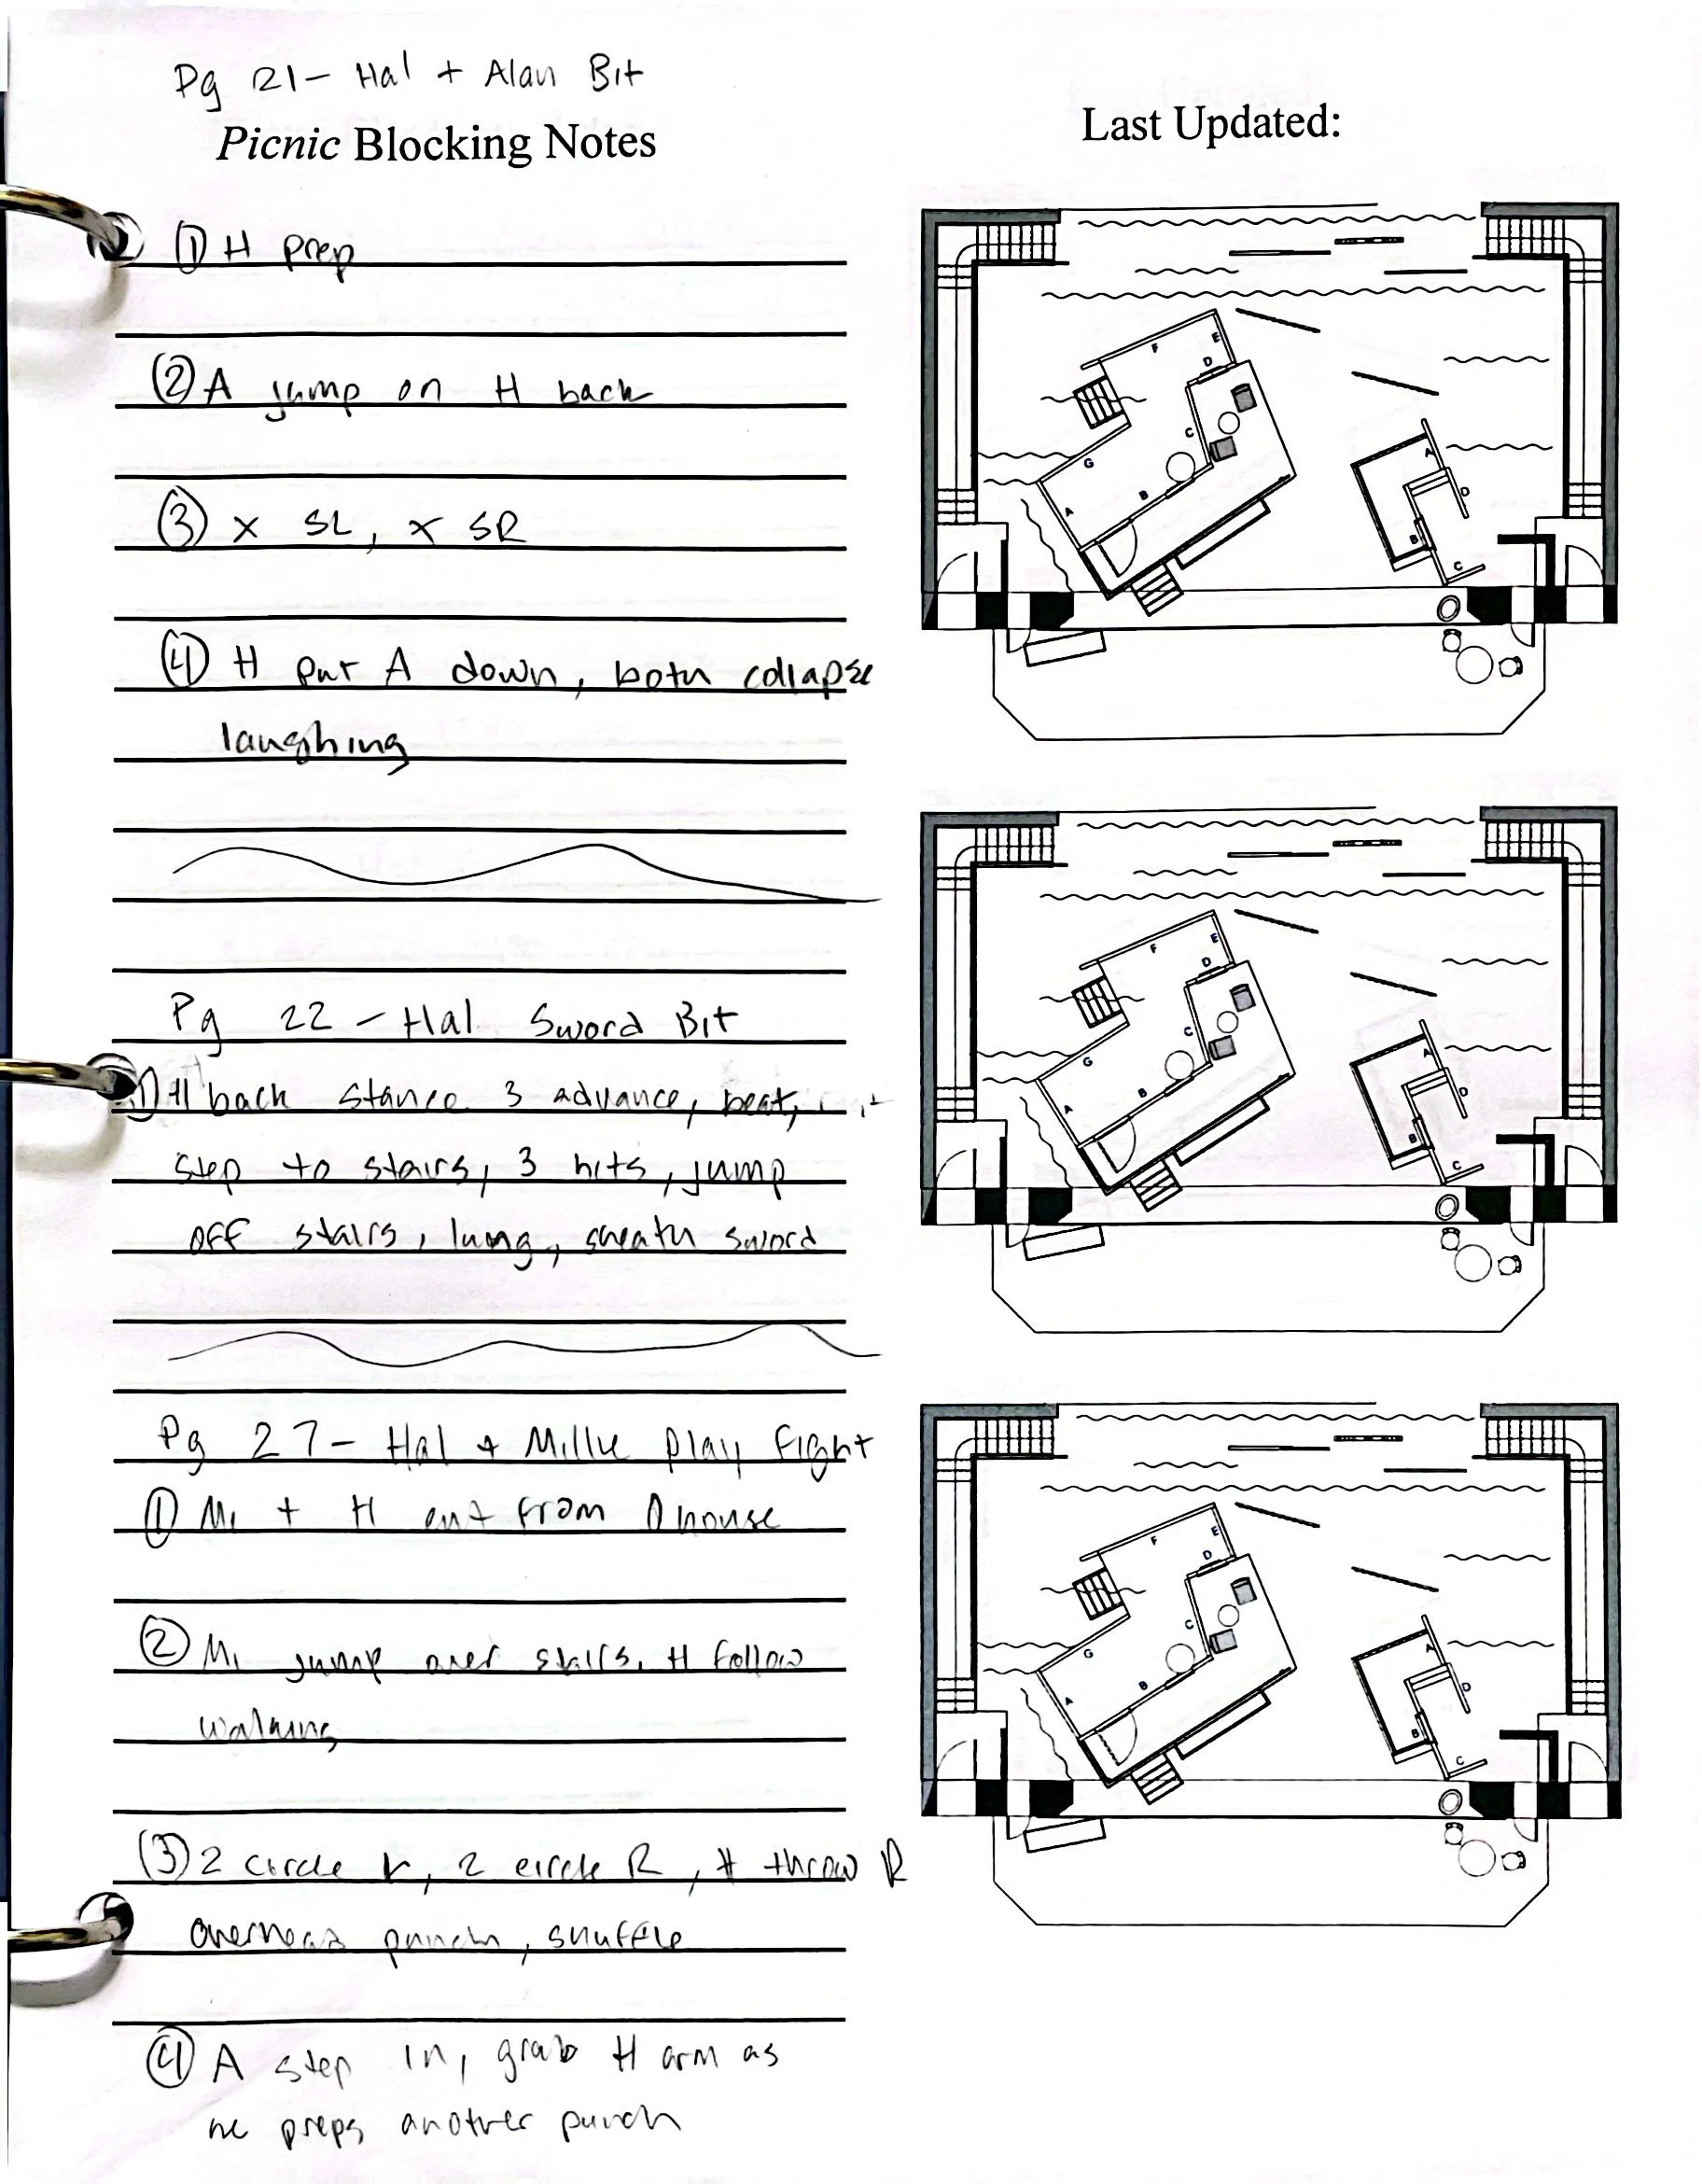 Pg 21- Hal + Alan Bit
Picnic Blocking Notes
Last Updated:
① H prep
② A jump on H back
③ x SL, x SR
④ H put A down, both collapse
laughing
Pg 22 - Hal Sword Bit
① H back stance 3 advance, beat,
step to stairs, 3 hits, jump
off stairs, lung, sheath sword
Pg 27- Hal + Millie play fight
① Mi + H ent from house
② Mi jump over stairs, H follow
walking
③ 2 circle 2 circle R, H throw R
overhead punch, shuffle
④ A step in, grab H arm as
he preps another punch
F
E
D
C
G
B
A
A
D
B
C
F
E
D
C
G
B
A
A
D
B
C
F
E
D
C
G
B
A
A
D
B
C